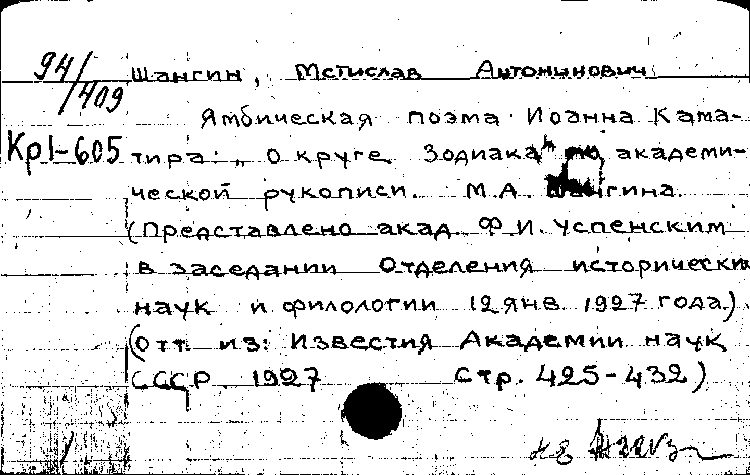 94/409
Шангин, Мстислав Антонинович
Ямбическая поэма Иоанна Кама-
Кр1-605
тира: „О круге Зодиака" по академи-
ческой рукописи. М.А. Шангина.
(Представлено акад. Ф.И. Успенским
в заседании Отделения исторически
наук и филологии 12 янв. 1927 года.)
(Отт. из: Известия Академии наук
СССР. 1927 стр. 425-432)